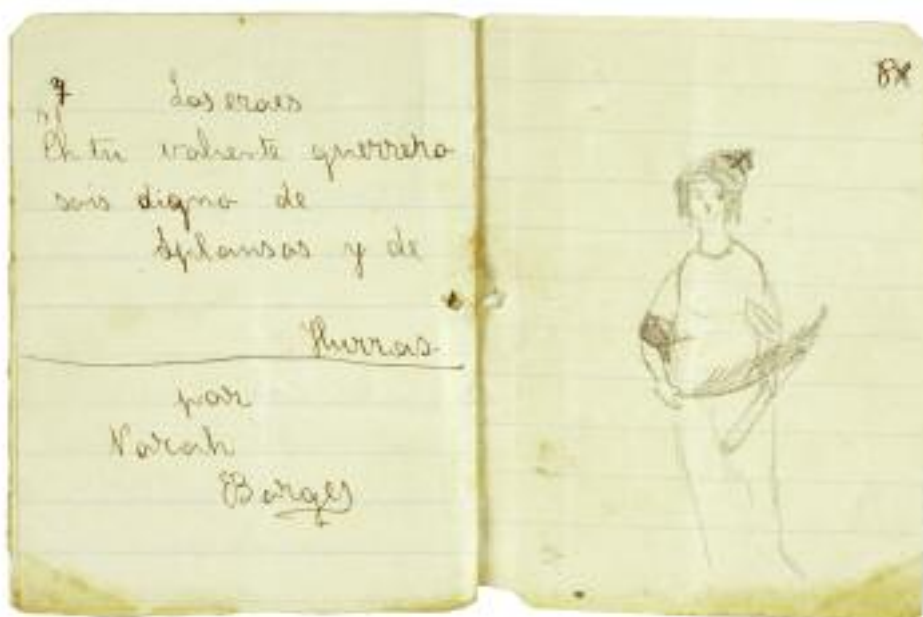 7 Los eroes
Oh tu valiente guerrero
sois digno de
Aplansos y de
Hurras
por
Norah
Borges
8